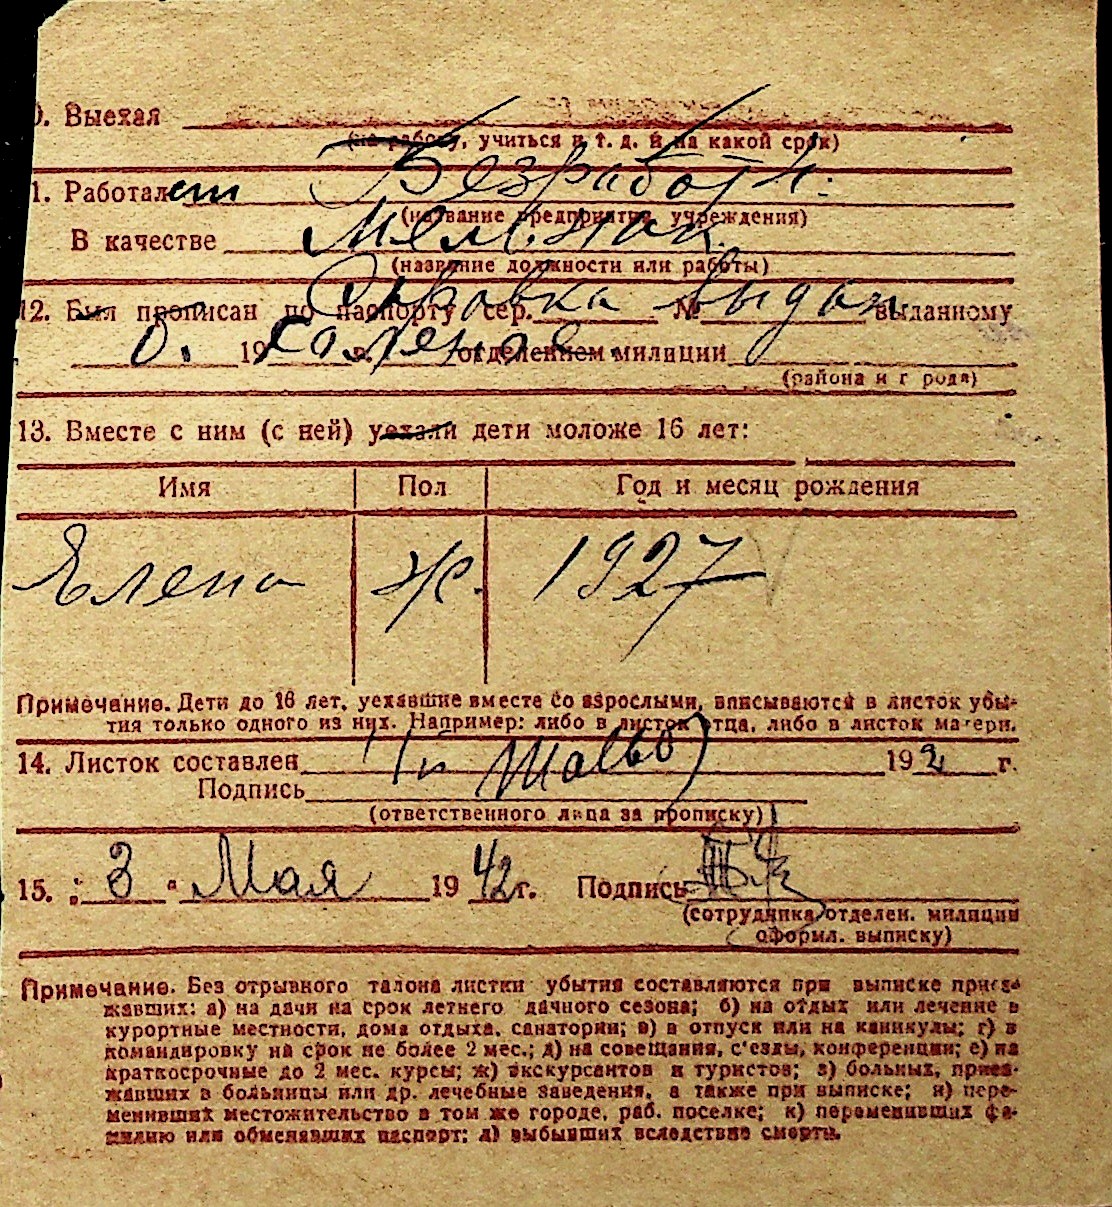 0. Выехал
(на работу, учиться и т. д. и на какой срок)
Безработн.
1. Работает
(название предприятия, учреждения)
В качестве
(название должности или работы)
Справка выдан
12. Был прописан по паспорту сер. № выданному
19 г. отделением милиции
(района и города)
13. Вместе с ним (с ней) уехали дети моложе 16 лет:
Имя Пол Год и месяц рождения
Елена ж. 1927
Примечание. Дети до 16 лет, уехавшие вместе со взрослыми, вписываются в листок убы-
тия только одного из них. Например: либо в листок отца, либо в листок матери.
14. Листок составлен 192 г.
Подпись
(ответственного лица за прописку)
15. "3" Мая 1942г. Подпись
(сотрудника отделен. милиции
оформл. выписку)
Примечание. Без отрывного талона листки убытия составляются при выписке приез-
жавших: а) на дачи на срок летнего дачного сезона; б) на отдых или лечение в
курортные местности, дома отдыха, санатории; в) в отпуск или на каникулы; г) в
командировку на срок не более 2 мес.; д) на совещания, с'езды, конференции; е) на
краткосрочные до 2 мес. курсы; ж) экскурсантов и туристов; з) больных, приез-
жавших в больницы или др. лечебные заведения, а также при выписке; и) пере-
менивших местожительство в том же городе, раб. поселке; к) переменивших фа-
милию или обменявших паспорт; л) выбывших вследствие смерти.